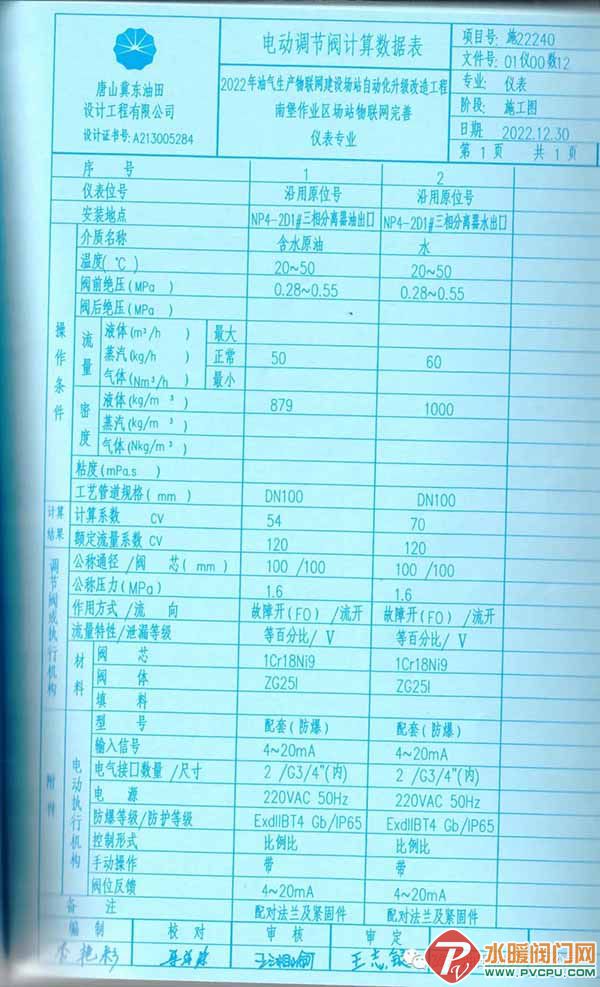 唐山冀东油田
设计工程有限公司
设计证书号: A213005284
电动调节阀计算数据表
2022年油气生产物联网建设场站自动化升级改造工程
南堡作业区场站物联网完善
仪表专业
项目号: 施22240
文件号: 01仪00数12
专业: 仪表
阶段: 施工图
日期: 2022.12.30
第 1 页 共 1 页
序 号 1 2
仪表位号 沿用原位号 沿用原位号
安装地点 NP4-2D1#三相分离器油出口 NP4-2D1#三相分离器水出口
操作条件
介质名称 含水原油 水
温度(℃) 20~50 20~50
阀前绝压(MPa) 0.28~0.55 0.28~0.55
阀后绝压(MPa)
流量
液体(m³/h) 最大
蒸汽(kg/h) 正常 50 60
气体(Nm³/h) 最小
密度
液体(kg/m³) 879 1000
蒸汽(kg/m³)
气体(Nkg/m³)
粘度(mPa.s)
工艺管道规格(mm) DN100 DN100
计算结果
计算系数 CV 54 70
额定流量系数 CV 120 120
调节阀或执行机构
公称通径/阀 芯(mm) 100/100 100/100
公称压力(MPa) 1.6 1.6
作用方式/流 向 故障开(FO)/流开 故障开(FO)/流开
流量特性/泄漏等级 等百分比/V 等百分比/V
材料
阀 芯 1Cr18Ni9 1Cr18Ni9
阀 体 ZG25I ZG25I
填 料
附件
电动执行机构
型 号 配套(防爆) 配套(防爆)
输入信号 4~20mA 4~20mA
电气接口数量/尺寸 2/G3/4"(内) 2/G3/4"(内)
电 源 220VAC 50Hz 220VAC 50Hz
防爆等级/防护等级 ExdIIBT4 Gb/IP65 ExdIIBT4 Gb/IP65
控制形式 比例比 比例比
手动操作 带 带
阀位反馈 4~20mA 4~20mA
备 注 配对法兰及紧固件 配对法兰及紧固件
编 制 校 对 审 核 审 定
水暖阀门网
WWW.PVCPU.COM